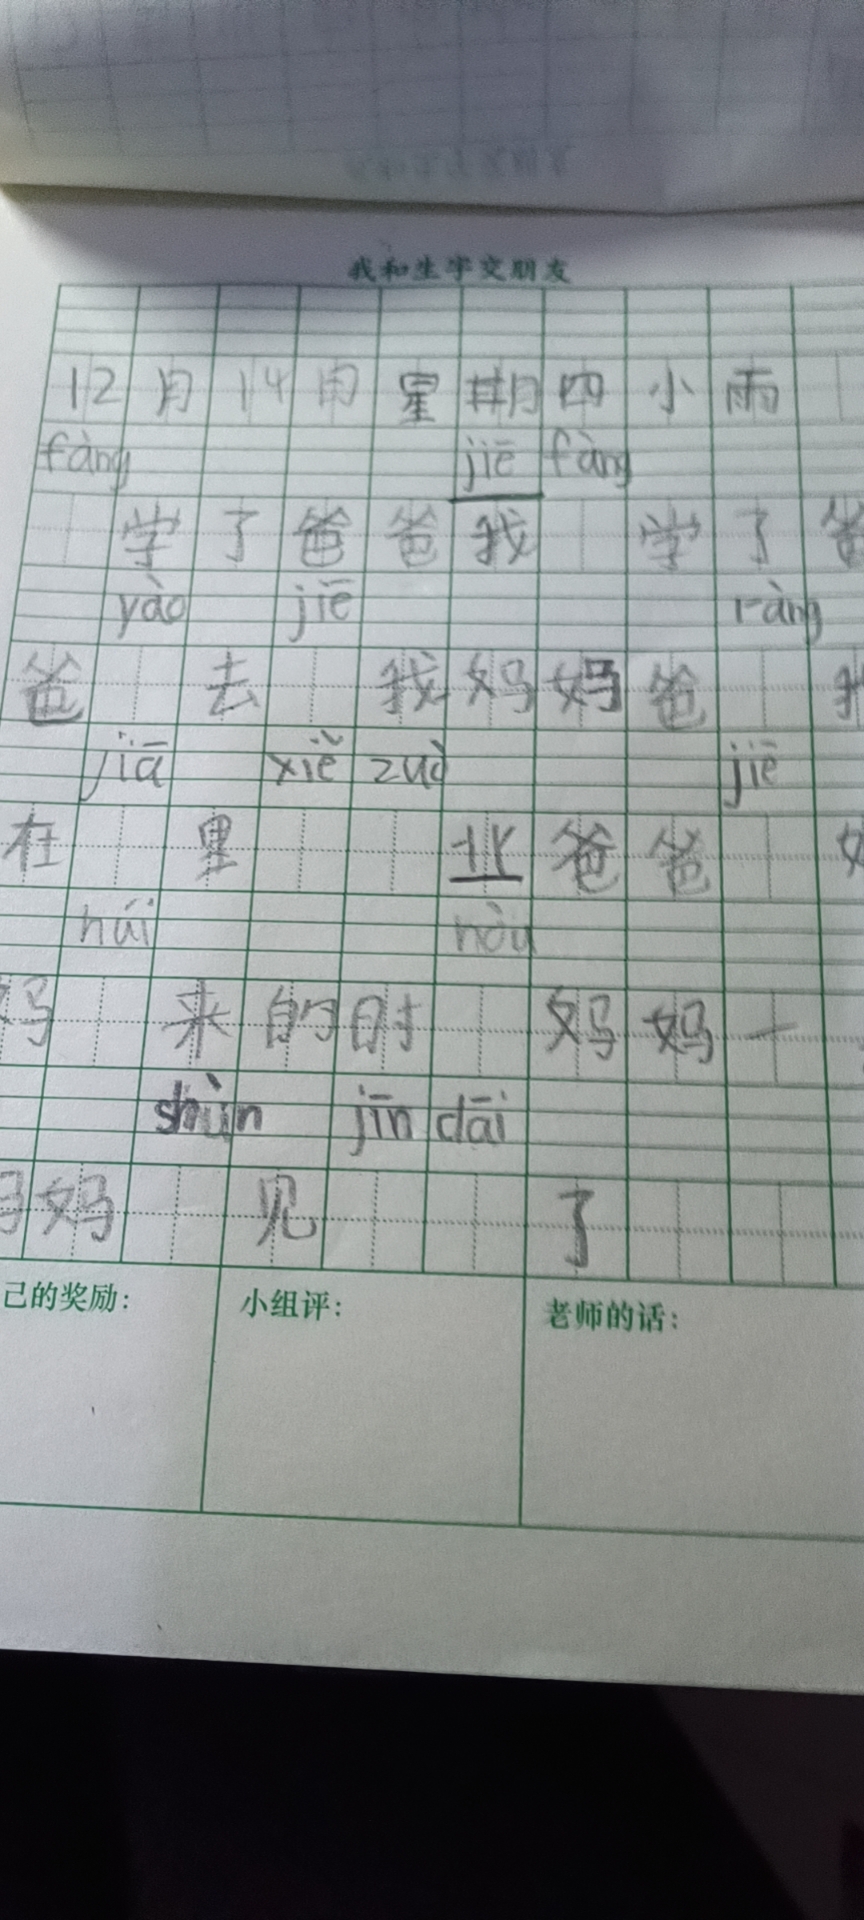 我和生字交朋友
12月14日星期四小雨
fàng jiē fàng
学了爸爸我学了爸
yào jiē ràng
爸去我妈妈爸我
jiā xiě zuò jiē
在里业爸爸妈
huí hòu
妈来的时妈妈一
shùn jīn dāi
妈妈见了
己的奖励：
小组评：
老师的话：